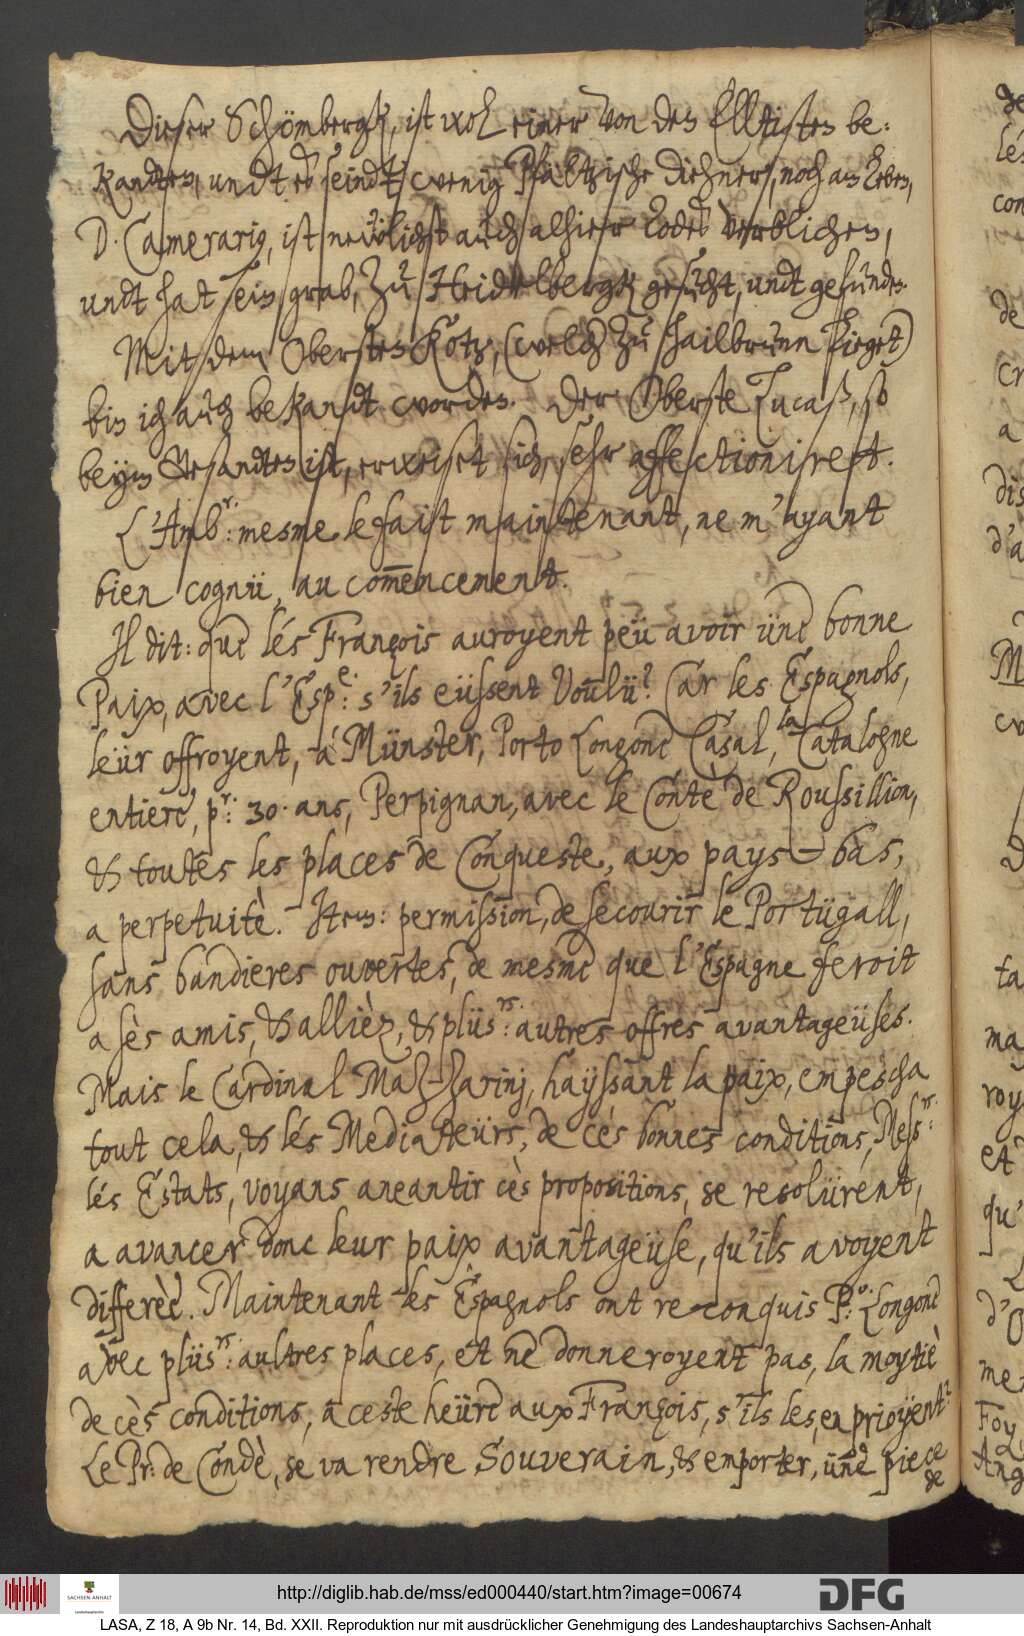 Dieser Schömbergk, ist wol einer von den Elltisten be-
kandten, undt es seindt, wenig Pfältzische diehner, noch am leben,
D. Camerarius, ist newlichst auch alhier todes verblichen,
undt hat sein grab, zu Heidelbergk gesucht, undt gefunden.
Mit dem Obersten Kötz, (welch zu hailbrunn lieget)
bin ich auch bekandt worden. Der Oberste Lucaß, so
beym Gesandten ist, erweiset sich, sehr affectionirett.
L'Ambr: mesme le fait maintenant, ne m'ayant
bien cognü, au com̄encement.
Il dit: que lés François auroyent peü avoir üne bonne
Paix, avec l'Espe: s'ils eüssent voulü? Car les Espagnols,
leür offroyent, à Münster, Porto Longone Casal, la Catalogne
entiere, pr: 30. ans, Perpignan, avec le Conte de Roussillion,
& toutes les places de Conqueste, aux pays-bas,
a perpetuitè. Item: permission, de secourir le Portügall,
sans bandieres ouvertes, de mesme que l'Espagne feroit
a sès amis, & allièz, & plüsrs: autres offres avantageüses.
Mais le Cardinal Maz-zarinj, hayssant la paix, empescha
tout cela, & lés Mediateürs, de cés bonnes conditions, Messrs:
lés Estats, voyans aneantir cès propositions, se resolürent,
a avancer donc leur paix avantageüse, qu'ils avoyent
differèe. Maintenant les Espagnols ont re-conquis Po: Longone
avec plüsrs: aultres places, et ne donneroyent pas, la moytiè
de cès conditions, a ceste heüre aux François, s'ils les, en prioyent?
Le Pr: de Condè, se va rendre Souverain, & emporter, üne piece
de
http://diglib.hab.de/mss/ed000440/start.htm?image=00674
DFG
SACHSEN-ANHALT
Landeshauptarchiv
LASA, Z 18, A 9b Nr. 14, Bd. XXII. Reproduktion nur mit ausdrücklicher Genehmigung des Landeshauptarchivs Sachsen-Anhalt